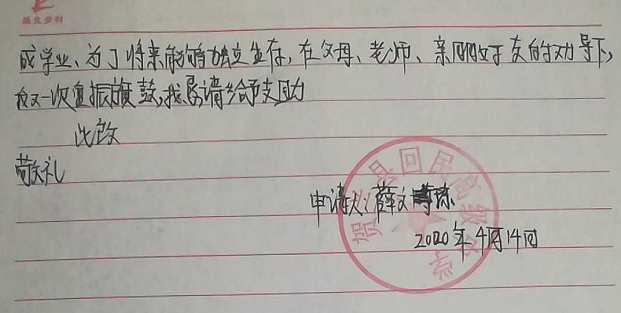 成学业、为了将来能够独立生存，在父母、老师、亲朋好友的劝导下，
又一次重振旗鼓，我恳请给予支助
此致
敬礼
申请人：薛文 琼
2020年4月14日
县回民高级中学